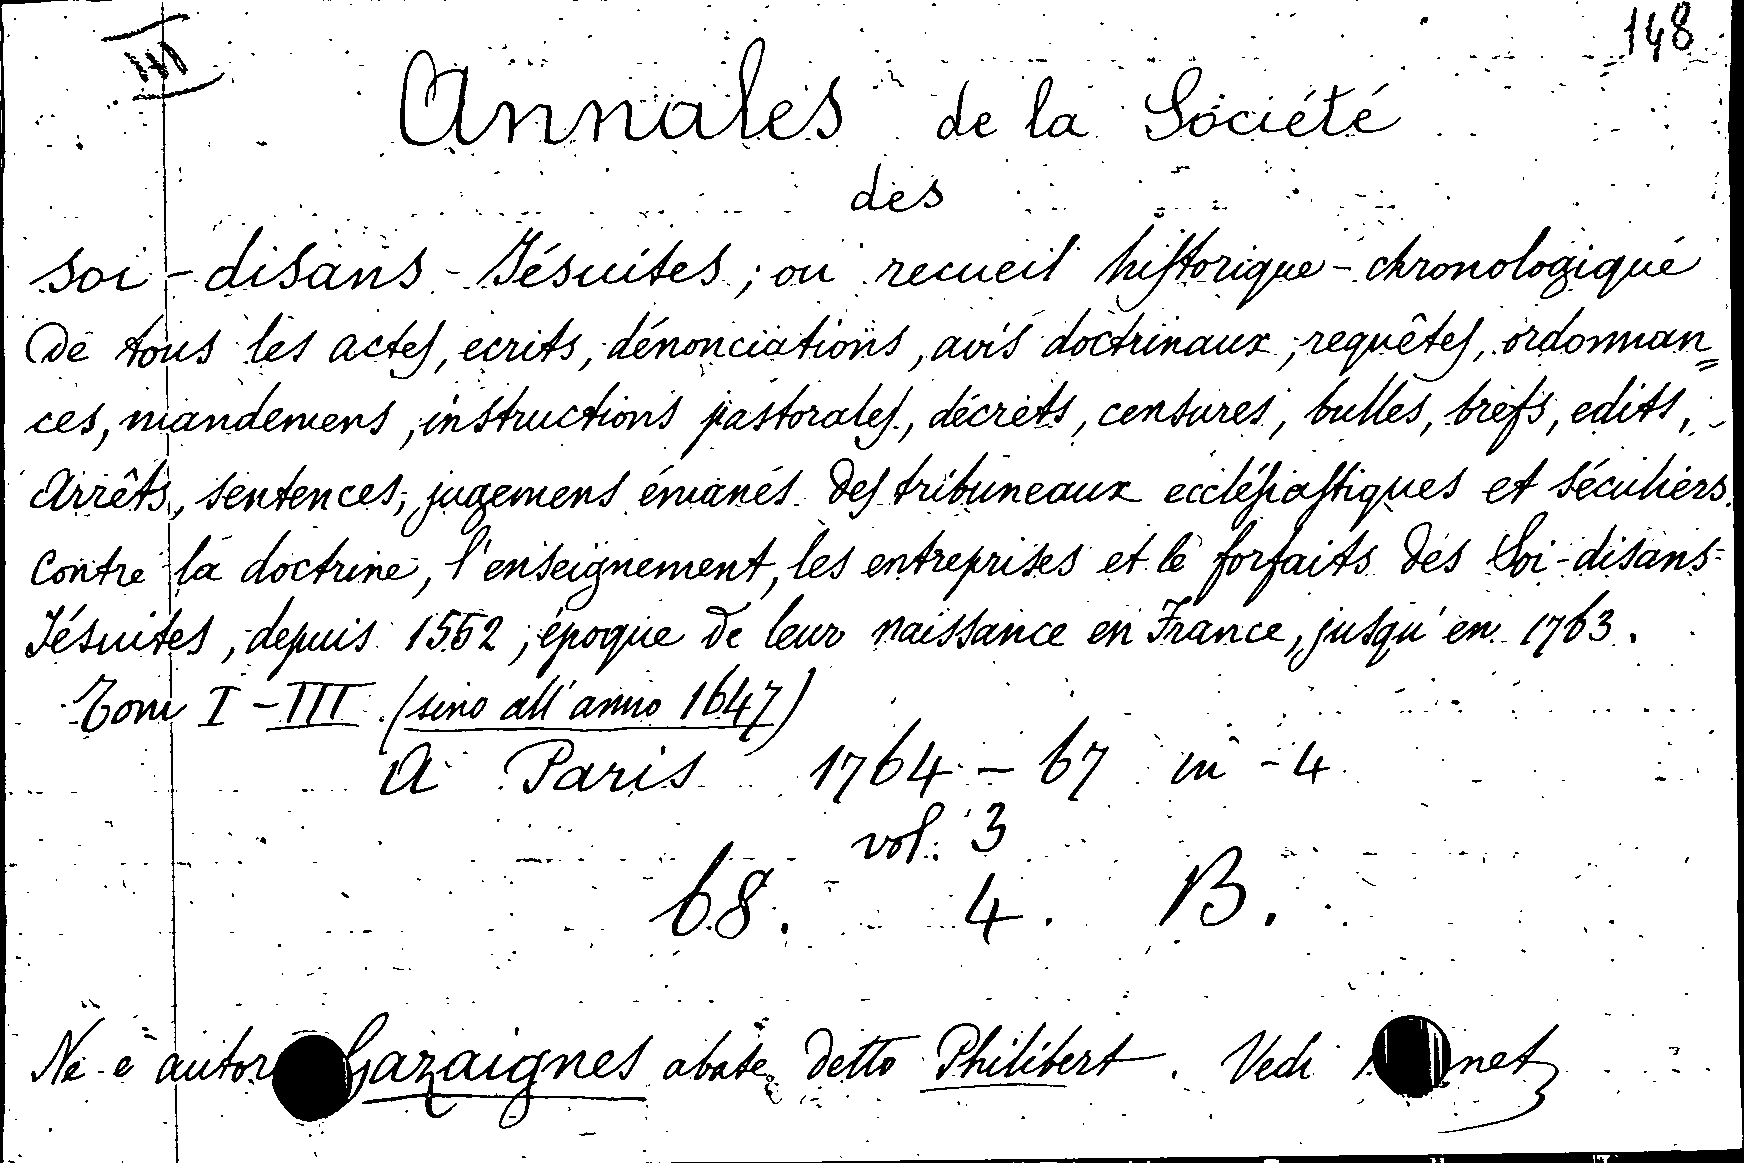 148
III
Annales de la Société
des
soi-disans-Jésuites; ou recueil historique-chronologique
De tous les actes, ecrits, dénonciations, avis doctrinaux, requêtes, ordonnan=
ces, mandemens, instructions pastorales, décrets, censures, bulles, brefs, edits,
Arrêts, sentences, jugemens émanés des tribuneaux ecclésiastiques et séculiers
contre la doctrine, l'enseignement, les entreprises et le forfaits des Soi-disans-
Jésuites, depuis 1552, époque de leur naissance en France, jusqu'en 1763.
Tom I-III (sino all'anno 1647)
A Paris 1764-67 in-4
vol. 3
68. 4. B.
Ne è autor Gazaignes abate detto Philibert. Vedi